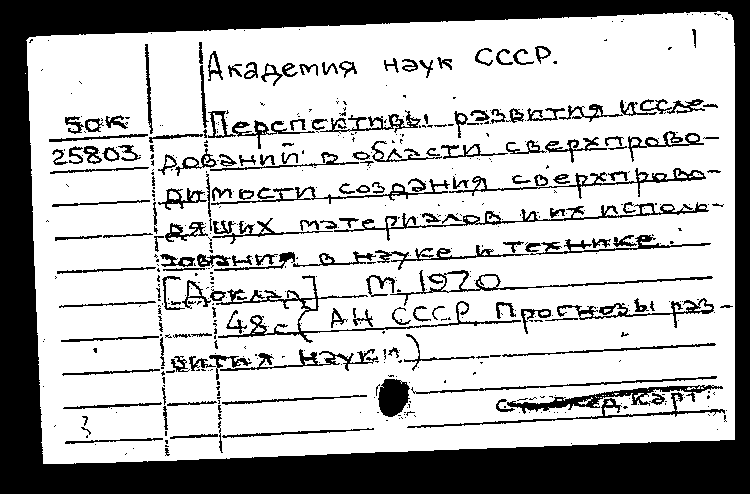 1
Академия наук СССР.
50к
25803
Перспективы развития иссле-
дований в области сверхпрово-
димости, создания сверхпрово-
дящих материалов и их исполь-
зования в науке и технике.
[Доклад] М, 1970
48с (АН СССР. Прогнозы раз-
вития науки)
д. карт.
3